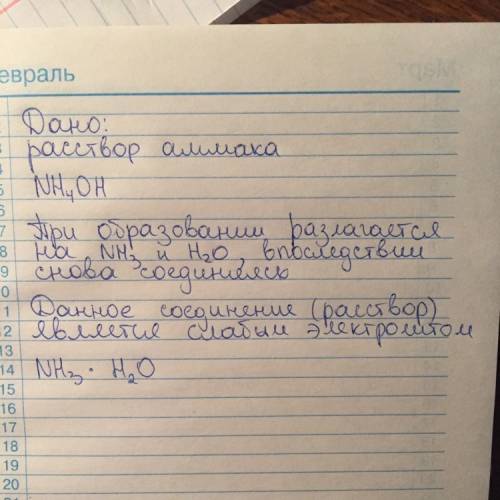 евраль
Март
Дано:
3 расствор аммиака
4
5 NH4OH
6
7 При образовании разлагается
8 на NH3 и H2O, впоследствии
9 снова соединяясь
0
1 Данное соединение (расствор)
12 является слабым электролитом
13
14 NH3 · H2O
15
16
17
18
19
20